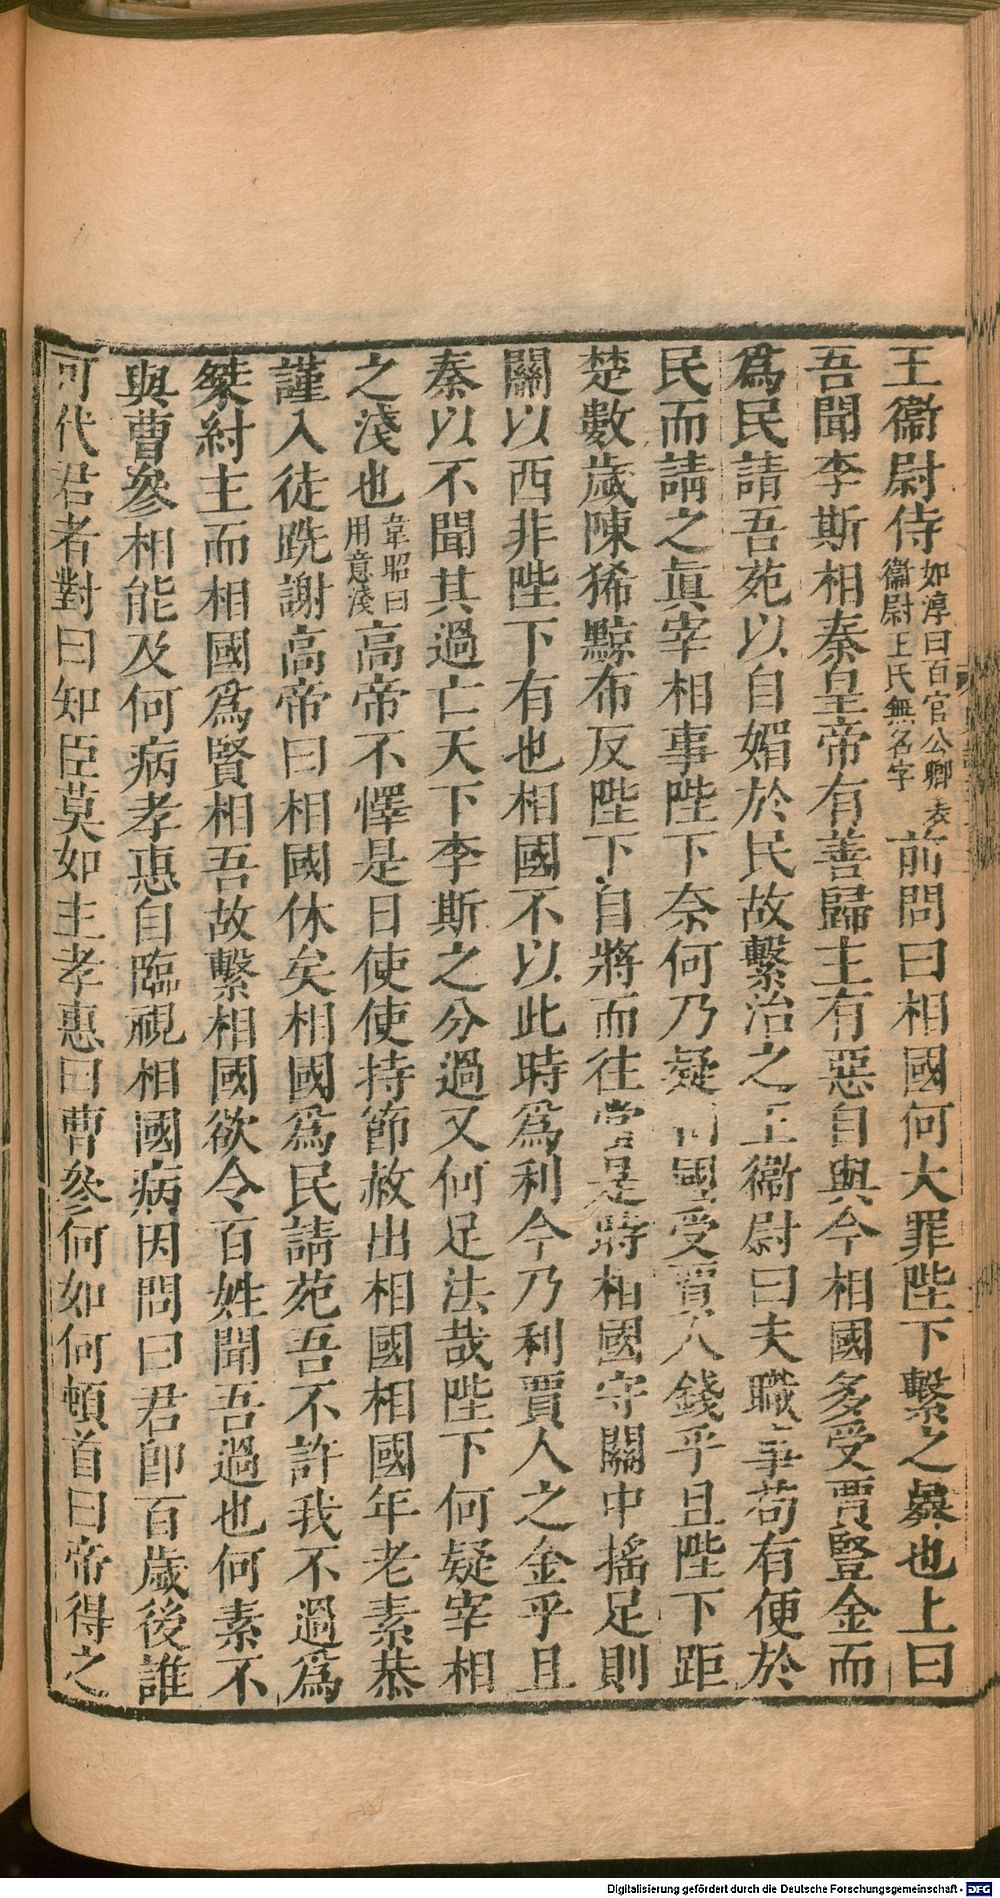 王衞尉侍如淳曰百官公卿表衞尉王氏無名字前問曰相國何大罪陛下繫之暴也上曰
吾聞李斯相秦皇帝有善歸主有惡自與今相國多受賈豎金而
爲民請吾苑以自媚於民故繫治之王衞尉曰夫職事苟有便於
民而請之眞宰相事陛下奈何乃疑相國受賈人錢乎且陛下距
楚數歲陳狶黥布反陛下自將而往當是時相國守關中搖足則
關以西非陛下有也相國不以此時爲利今乃利賈人之金乎且
秦以不聞其過亡天下李斯之分過又何足法哉陛下何疑宰相
之淺也韋昭曰用意淺高帝不懌是日使使持節赦出相國相國年老素恭
謹入徒跣謝高帝曰相國休矣相國爲民請苑吾不許我不過爲
桀紂主而相國爲賢相吾故繫相國欲令百姓聞吾過也何素不
與曹參相能及何病孝惠自臨視相國病因問曰君卽百歲後誰
可代君者對曰知臣莫如主孝惠曰曹參何如何頓首曰帝得之
Digitalisierung gefördert durch die Deutsche Forschungsgemeinschaft - DFG